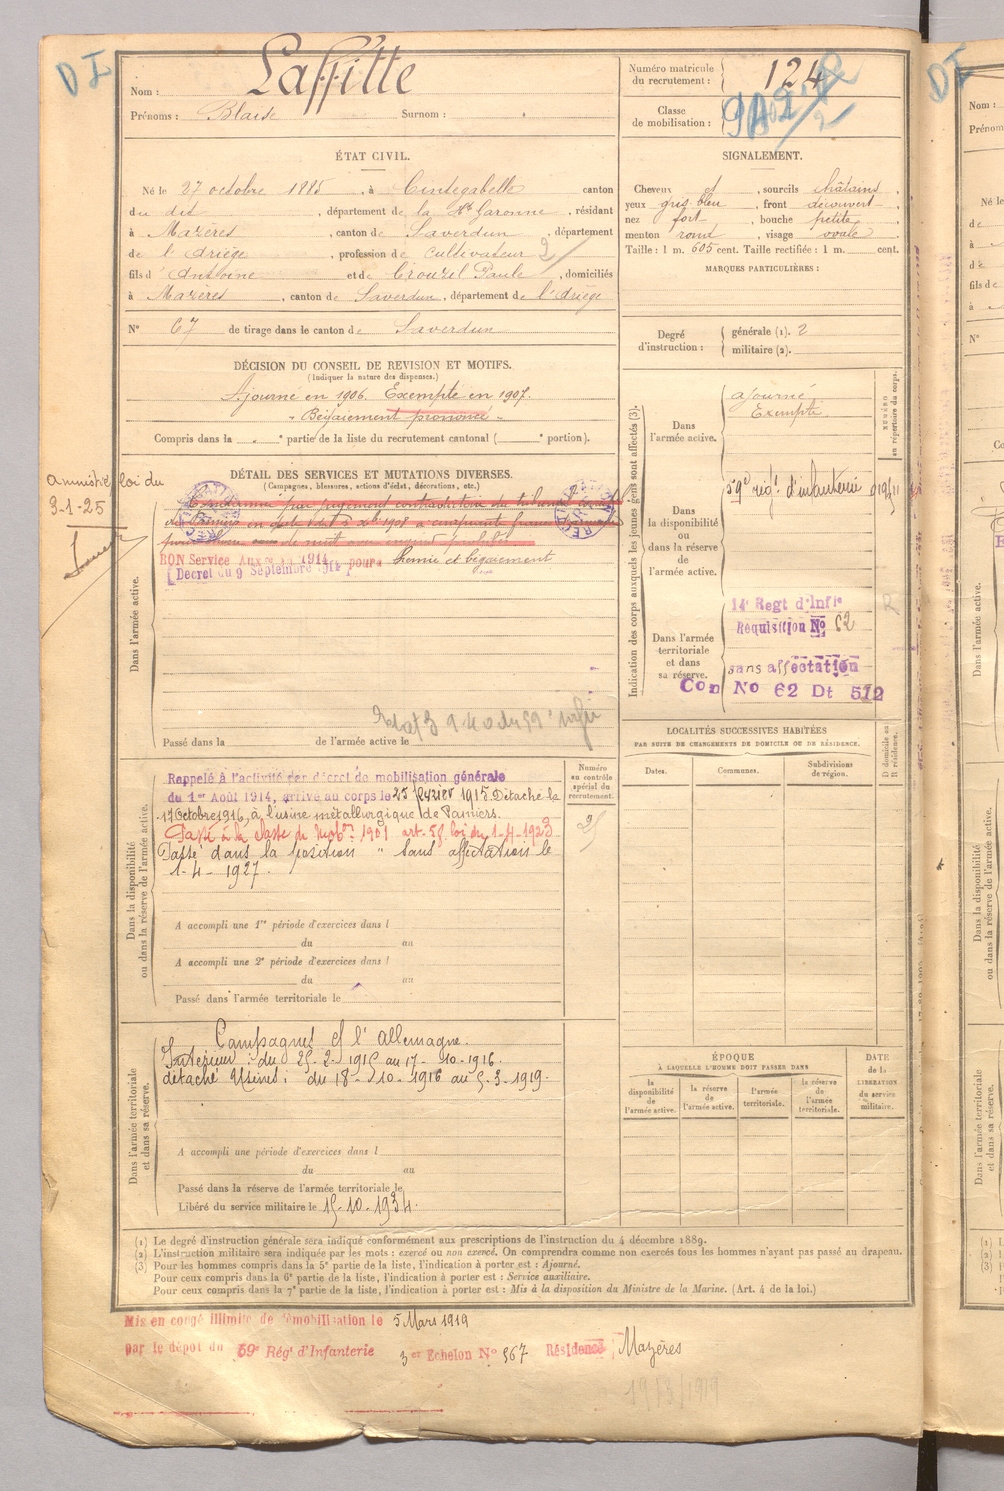 DI
Nom : Laffitte
Prénoms : Blaise Surnom :
Numéro matricule du recrutement : 124
Classe de mobilisation :
ÉTAT CIVIL.
Né le 27 octobre 1885, à Cintegabelle canton
du dit, département de la Hte Garonne, résidant
à Mazères, canton de Saverdun, département
de l'Ariège, profession de cultivateur 2
fils d'Antoine et de Crouzil Paule, domiciliés
à Mazères, canton de Saverdun, département de l'Ariège
N° 67 de tirage dans le canton de Saverdun
SIGNALEMENT.
Cheveux et, sourcils châtains,
yeux gris bleu, front découvert,
nez fort, bouche petite,
menton rond, visage ovale.
Taille : 1 m. 605 cent. Taille rectifiée : 1 m. cent.
MARQUES PARTICULIÈRES :
Degré d'instruction : générale (1). 2
militaire (2).
DÉCISION DU CONSEIL DE REVISION ET MOTIFS.
(Indiquer la nature des dispenses.)
Ajourné en 1906. Exempté en 1907.
" Bégaiement prononcé "
Compris dans la " ° partie de la liste du recrutement cantonal ( ° portion).
DÉTAIL DES SERVICES ET MUTATIONS DIVERSES.
(Campagnes, blessures, actions d'éclat, décorations, etc.)
amnistié loi du
3-1-25
Condamné par jugement contradictoire du tribunal
de Pamiers en date du 1908 à cinquante francs
BON Service 1914 pour bégaiement
[Décret du 9 Septembre 1914]
Dans l'armée active.
Passé dans la de l'armée active le
Indication des corps auxquels les jeunes gens sont affectés (3).
NUMÉRO au répertoire du corps.
Dans l'armée active.
ajourné
Exempté
Dans la disponibilité ou dans la réserve de l'armée active.
59e rég.t d'infanterie
Dans l'armée territoriale et dans sa réserve.
14e Regt d'Infie
Requisition No 62
sans affectation
Con No 62 Dt 512
Dans la disponibilité ou dans la réserve de l'armée active.
Rappelé à l'activité par décret de mobilisation générale
du 1er Août 1914, arrivé au corps le 25 février 1915. Détaché le
17 Octobre 1916, à l'usine métallurgique de Pamiers.
Passé à la classe de mobon 1901 art. 58 loi du 1-4-1923
Passé dans la position " Sans affectation le
1-4-1927.
Numéro au contrôle spécial du recrutement.
A accompli une 1re période d'exercices dans l
du au
A accompli une 2e période d'exercices dans l
du au
Passé dans l'armée territoriale le
LOCALITÉS SUCCESSIVES HABITÉES
PAR SUITE DE CHANGEMENTS DE DOMICILE OU DE RÉSIDENCE.
Dates. Communes. Subdivisions de région. D domicile ou R résidence.
Dans l'armée territoriale et dans sa réserve.
Campagnes c/ l'Allemagne.
Intérieur : du 25-2-1915 au 17-10-1916.
détaché Usines : du 18-10-1916 au 5-3-1919.
A accompli une période d'exercices dans l
du au
Passé dans la réserve de l'armée territoriale le
Libéré du service militaire le 15-10-1934.
ÉPOQUE
À LAQUELLE L'HOMME DOIT PASSER DANS
la disponibilité de l'armée active. la réserve de l'armée active. l'armée territoriale. la réserve de l'armée territoriale.
DATE de la LIBERATION du service militaire.
(1) Le degré d'instruction générale sera indiqué conformément aux prescriptions de l'instruction du 4 décembre 1889.
(2) L'instruction militaire sera indiquée par les mots : exercé ou non exercé. On comprendra comme non exercés tous les hommes n'ayant pas passé au drapeau.
(3) Pour les hommes compris dans la 5e partie de la liste, l'indication à porter est : Ajourné.
Pour ceux compris dans la 6e partie de la liste, l'indication à porter est : Service auxiliaire.
Pour ceux compris dans la 7e partie de la liste, l'indication à porter est : Mis à la disposition du Ministre de la Marine. (Art. 4 de la loi.)
Mis en congé illimité de démobilisation le 5 Mars 1919
par le dépôt du 59e Régt d'Infanterie 3er Echelon N° 567 Résidence Mazères